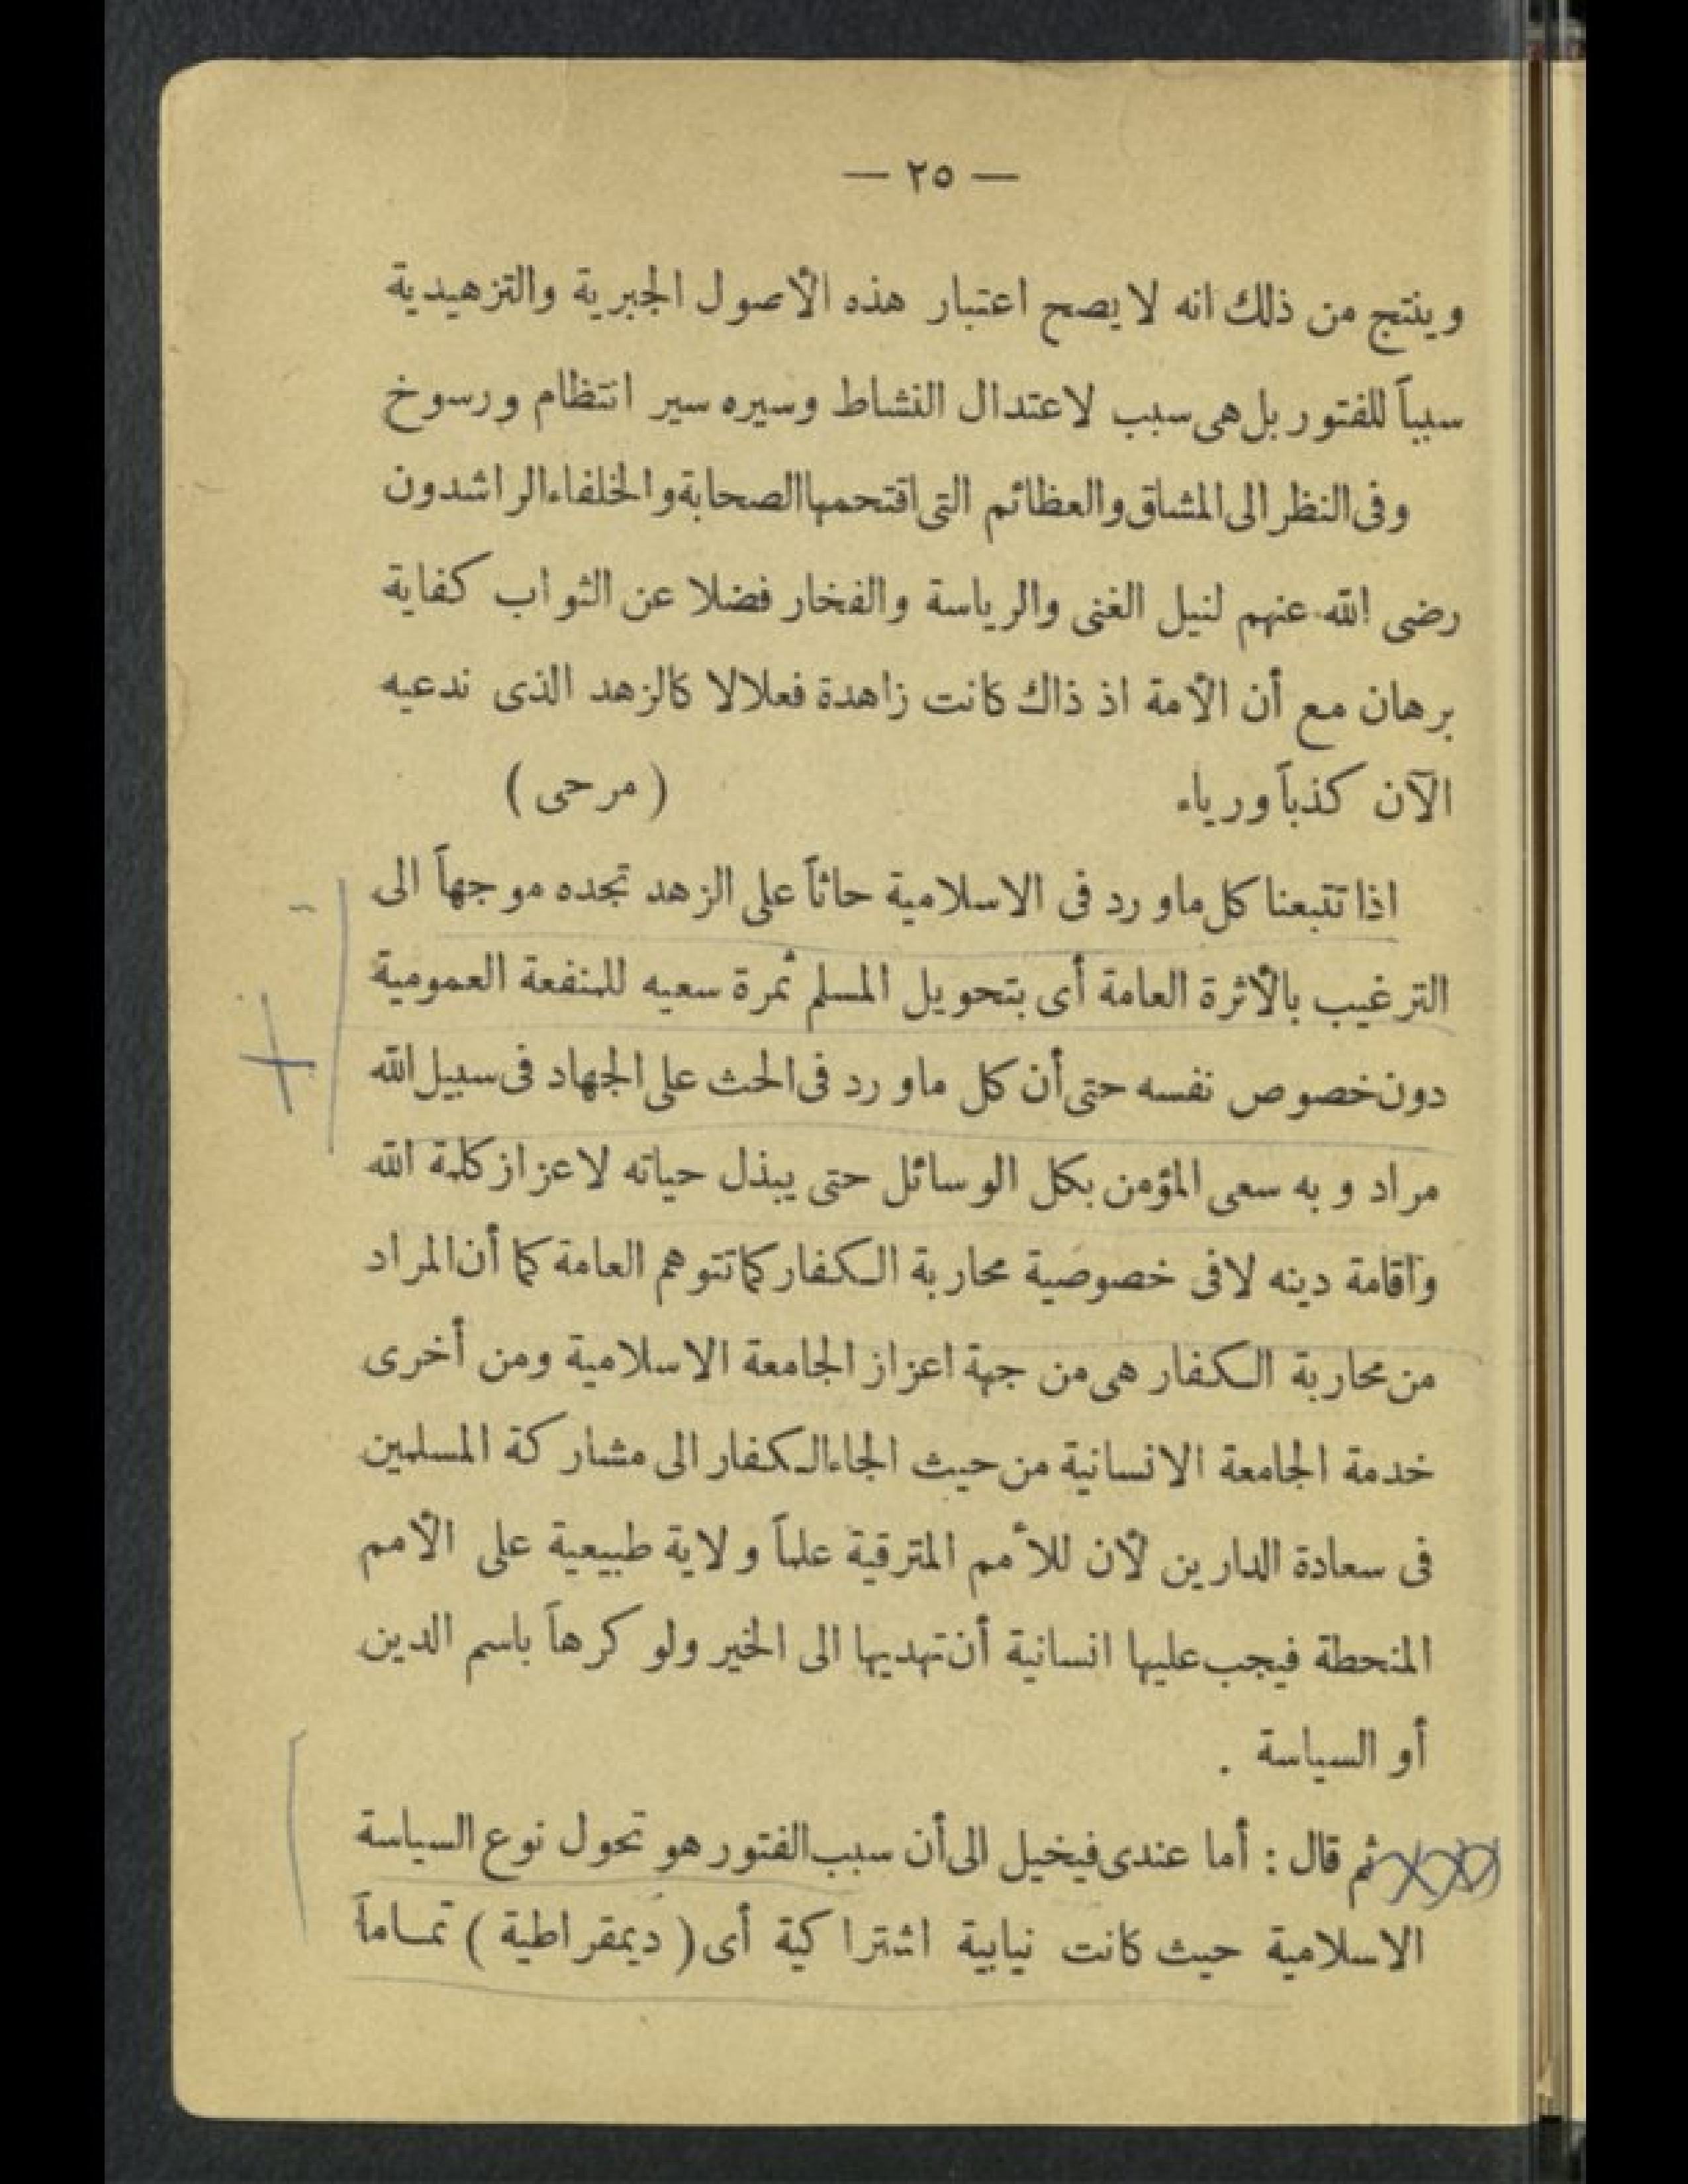 — ٢٥ —
وينتج من ذلك انه لا يصح اعتبار هذه الأصول الجبرية والتزهيدية
سبباً للفتور بل هى سبب لاعتدال النشاط وسيره سير انتظام ورسوخ
وفى النظر الى المشاق والعظائم التى اقتحمها الصحابة والخلفاء الراشدون
رضى الله عنهم لنيل الغنى والرياسة والفخار فضلا عن الثواب كفاية
برهان مع أن الأمة اذ ذاك كانت زاهدة فعلا لا كالزهد الذى ندعيه
الآن كذباً ورياء (مرحى)
اذا تتبعنا كل ماورد فى الاسلامية حاثاً على الزهد تجده موجهاً الى
الترغيب بالأثرة العامة أى بتحويل المسلم ثمرة سعيه للمنفعة العمومية
دون خصوص نفسه حتى أن كل ماورد فى الحث على الجهاد فى سبيل الله
مراد وبه سعى المؤمن بكل الوسائل حتى يبذل حياته لاعزاز كلمة الله
وآقامة دينه لا فى خصوصية محاربة الكفار كما تتوهم العامة كما أن المراد
من محاربة الكفار هى من جهة اعزاز الجامعة الاسلامية ومن أخرى
خدمة الجامعة الانسانية من حيث الجاء الكفار الى مشاركة المسلمين
فى سعادة الدارين لأن للأمم المترقية علماً ولاية طبيعية على الأمم
المنحطة فيجب عليها انسانية أن تهديها الى الخير ولو كرهاً باسم الدين
أو السياسة .
ثم قال : أما عندى فيخيل الى أن سبب الفتور هو تحول نوع السياسة
الاسلامية حيث كانت نيابية اشتراكية أى (ديمقراطية) تماماً